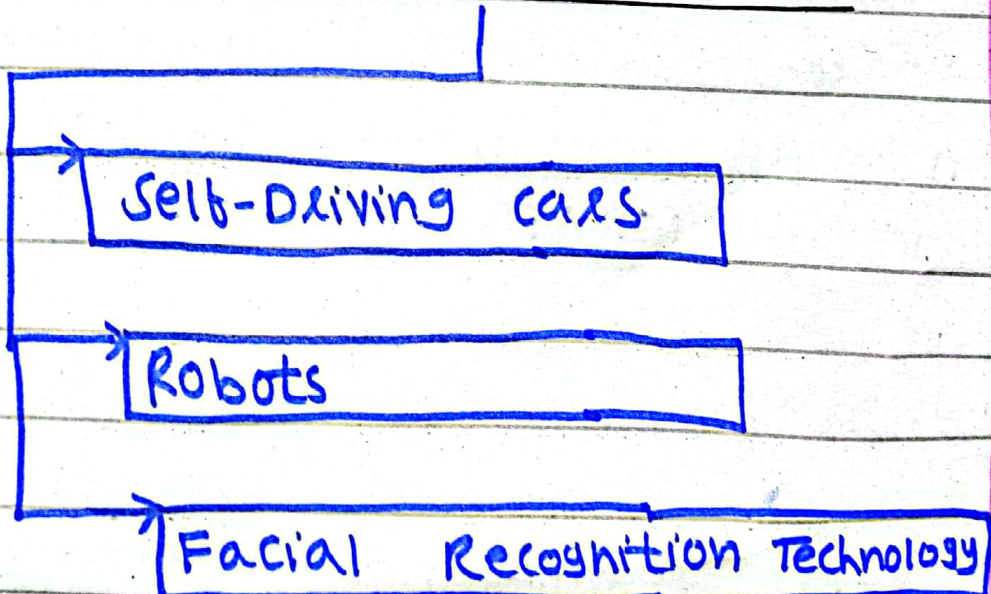 Self-Driving cars.
Robots
Facial Recognition Technology